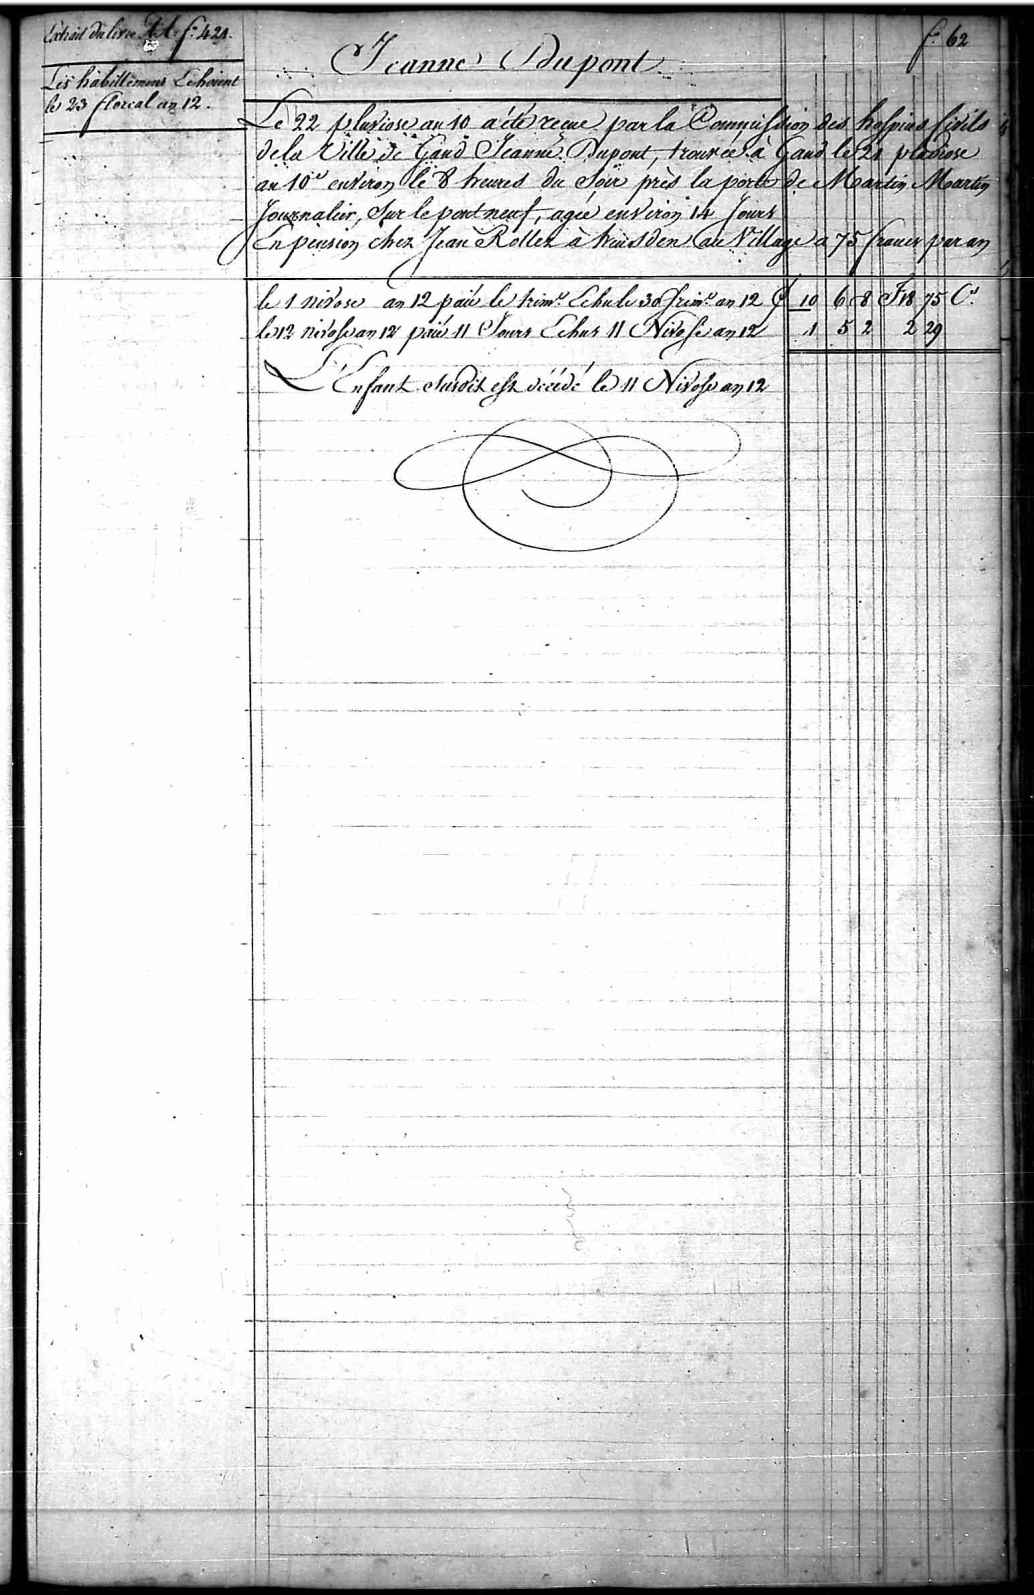 Extrait du livre AA f.o 424.
f.o 62
Jeanne Dupont
Les habillemens Echoient
le 23 floreal an 12.
Le 22 pluviose an 10 a été reçue par la Commission des hospices Civils
de la Ville de Gand Jeanne Dupont, trouvée à Gand le 21 pluviose
an 10e environ le 8 heures du Soir près la porte de Martin Martin
Journalier, Sur le pont neuf, agée environ 14 Jours
En pension chez Jean Rollez à heusden au Village a 75 francs par an
le 1 nivose an 12 paié le trime Echu le 30 frime an 12 10 6 8 F 18 75 Cs
le 12 nivose an 12 paié 11 Jours Echus 11 Nivose an 12 1 5 2 2 29
L'Enfant Susdit est décédé le 11 Nivose an 12